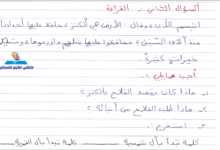 السؤال الثاني - القراءة
ابتسم الأب وقال: الأرض هي الكنز، حافظ عليها أجدادنا
منذ آلاف السنين، فحافظوا عليها بعلمهم وازرعوها وستكون
خيراتها كثيرة.
أجب عما يلي:-
١- ماذا كان يقصد الفلاح بالكنز؟
٢- ماذا طلب الفلاح من أبنائه؟
٣- استخرج:-
كلمة تبدأ بأل شمسية كلمة تبدأ بأل قمرية